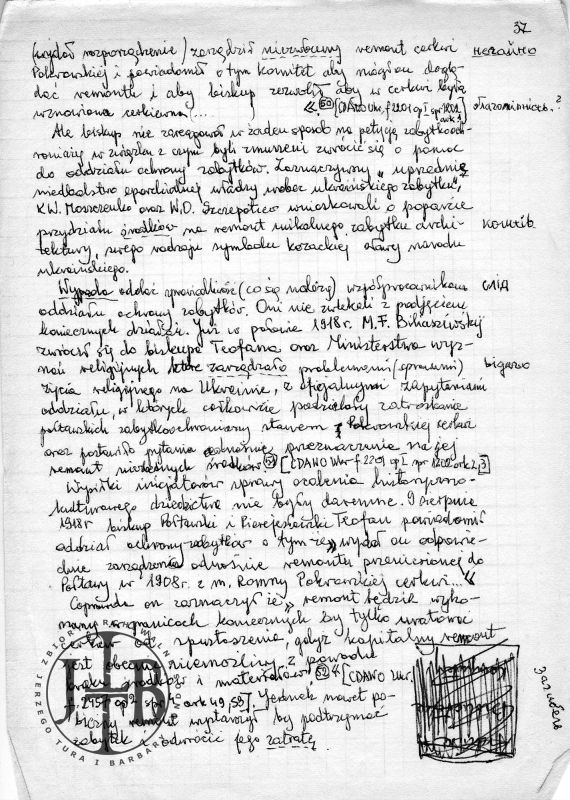 37
(wydał rozporządzenie) zarządził niezwłoczny remont cerkwi негайно
Pokrowskiej i powiadomił o tym Komitet aby mógł on doglą-
dać remontu i aby biskup zezwolił aby w cerkwi była
wznowiona cerkiewna (... ) «. 50 [CDAWO Ukr. f 2201 op I spr 1202 ark 3
Ale biskup nie zareagował w żaden sposób na petycję zabytkooch-
roniarzy w związku z czym byli zmuszeni zwrócić się o pomoc
do oddziału ochrony zabytków. Zaznaczywszy „uprzednie
niedbalstwo eparchialnej władzy wobec ukraińskiego zabytku",
K.W. Moszczenko oraz W.D. Szczepotiew wnioskowali o poparcie
przydziału środków na remont unikalnego zabytku archi- коштів.
tektury, swego rodzaju symbolu kozackiej sławy narodu
ukraińskiego.
Wypada oddać sprawiedliwość (co się należy) współpracownikom слід
oddziału ochrony zabytków. Oni nie zwlekali z podjęciem
koniecznych działań. Już w połowie 1918 r. M.F. Bilaszíwśkyj
zwrócił się do biskupa Teofana oraz Ministerstwa wyz-
nań religijnych które zarządzało problemami (sprawami) відало
życia religijnego na Ukrainie, z oficjalnymi zapytaniami
oddziału, w których całkowicie podzielały zatroskanie
połtawskich zabytkoochroniarzy stanem Pokrowskiej cerkwi
oraz postawiło pytanie odnośnie przeznaczenia na jej
remont niezbędnych środków 51 [CDAWO Ukr f 2201 op I spr 1202 ark 2, 3]
Wysiłki inicjatorów sprawy ocalenia historyczno-
kulturowego dziedzictwa nie były daremne. 9 sierpnia
1918 r biskup Połtawski i Pierejesławski Teofan powiadomił
oddział ochrony zabytków o tym że „wydał on odpowie-
dnie zarządzenia odnośnie remontu przeniesionej do
Połtawy w 1908 r. z m. Romny Pokrowskiej cerkwi..."
Coprawda on zaznaczył że „remont będzie wyko-
nany w granicach koniecznych by tylko uratować
cerkiew od spustoszenia, gdyż kapitalny remont
jest obecnie niemożliwy z powodu
braku środków i materiałów" 52 [CDAWO Ukr.
f. 2457 op I spr ark 49, 58]. Jednak nawet po-
bieżny remont wystarczył by podtrzymać
zabytek i odwrócić jego zatratę. загибель
ZBIORY RODZINNE
JERZEGO TURA I BARBARY
JTB